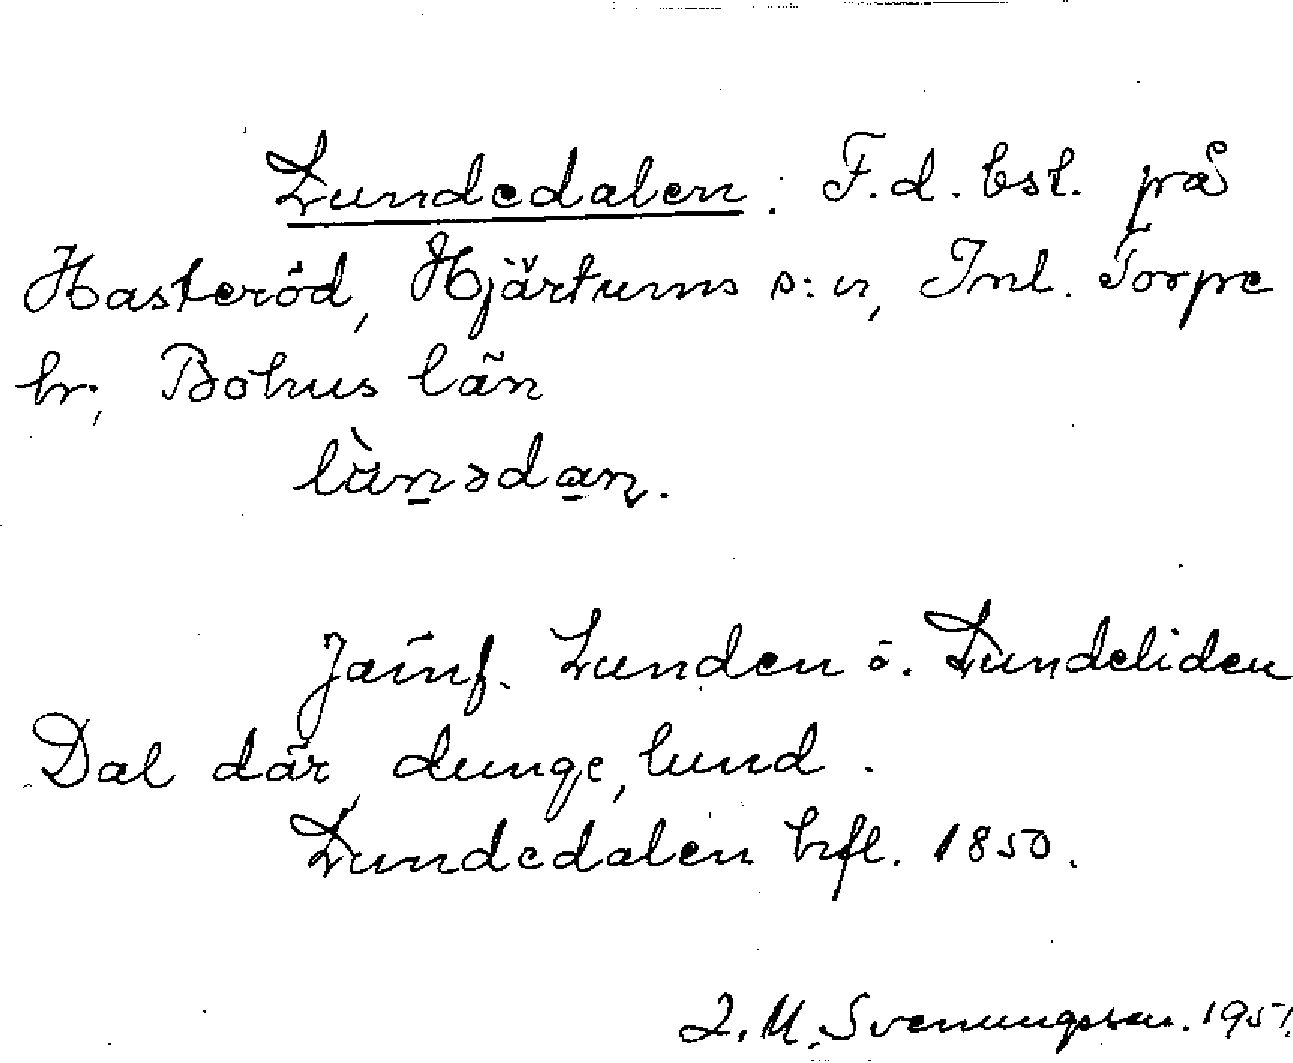 Lundedalen. F.d. bst. på
Hasteröd, Hjärtums s:n, Inl. Torpe
hr, Bohus län
lùnədan.
Jämf. Lunden o. Lundeliden
Dal där dunge, lund.
Lundedalen hfl. 1850.
J. M. Svenungsson. 1951.